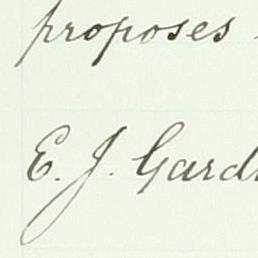 proposes
E. J. Gard